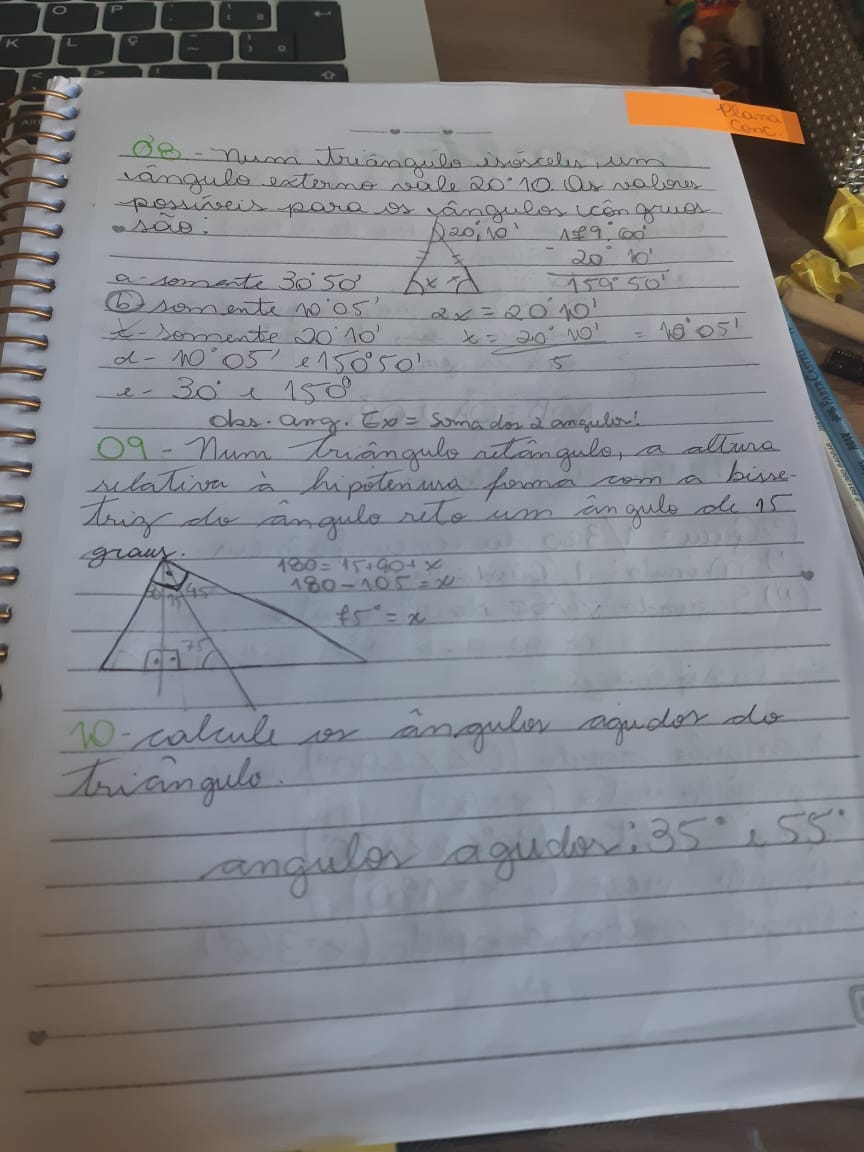 Plana
conc.
08 - Num triângulo isósceles, um
ângulo externo vale 20°10. Os valores
possíveis para os ângulos côngruos
são:
20° 10'
179° 60'
- 20° 10'
159° 50'
x x
a - somente 30°50'
b) somente 10°05'
2x = 20°10'
c - somente 20°10'
x = 20° 10' = 10°05'
d - 10°05' e 150°50'
e - 30° e 150°
obs. ang. Ex = soma dos 2 angulos!
09 - Num triângulo retângulo, a altura
relativa à hipotenusa forma com a bisse-
triz do ângulo reto um ângulo de 15
graus.
180 = 15+90+x
180 - 105 = x
75° = x
30 15 45
75
10 - calcule os ângulos agudos do
triângulo.
angulos agudos: 35° e 55°